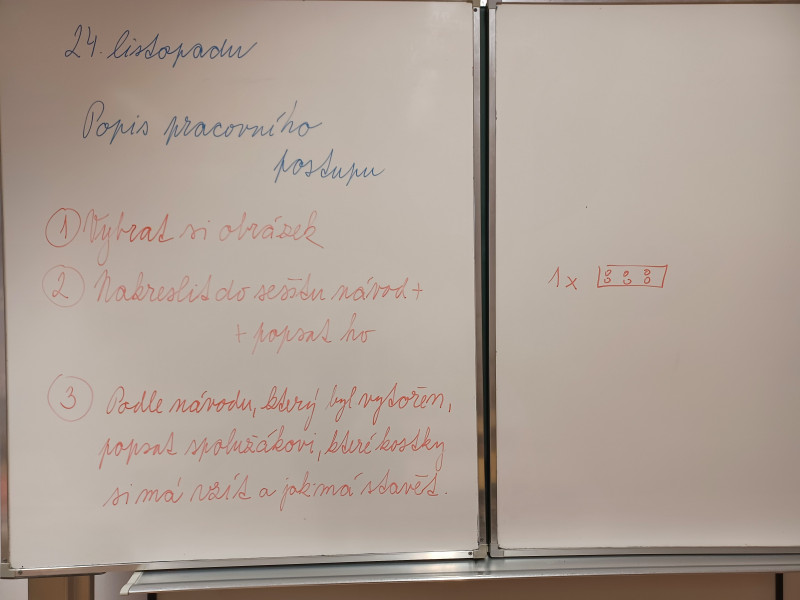 24. listopadu
Popis pracovního
postupu
1 Vybrat si obrázek
2 Nakreslit do sešitu návod +
+ popsat ho
3 Podle návodu, který byl vytvořen,
popsat spolužákovi, které kostky
si má vzít a jak má stavět.
1x